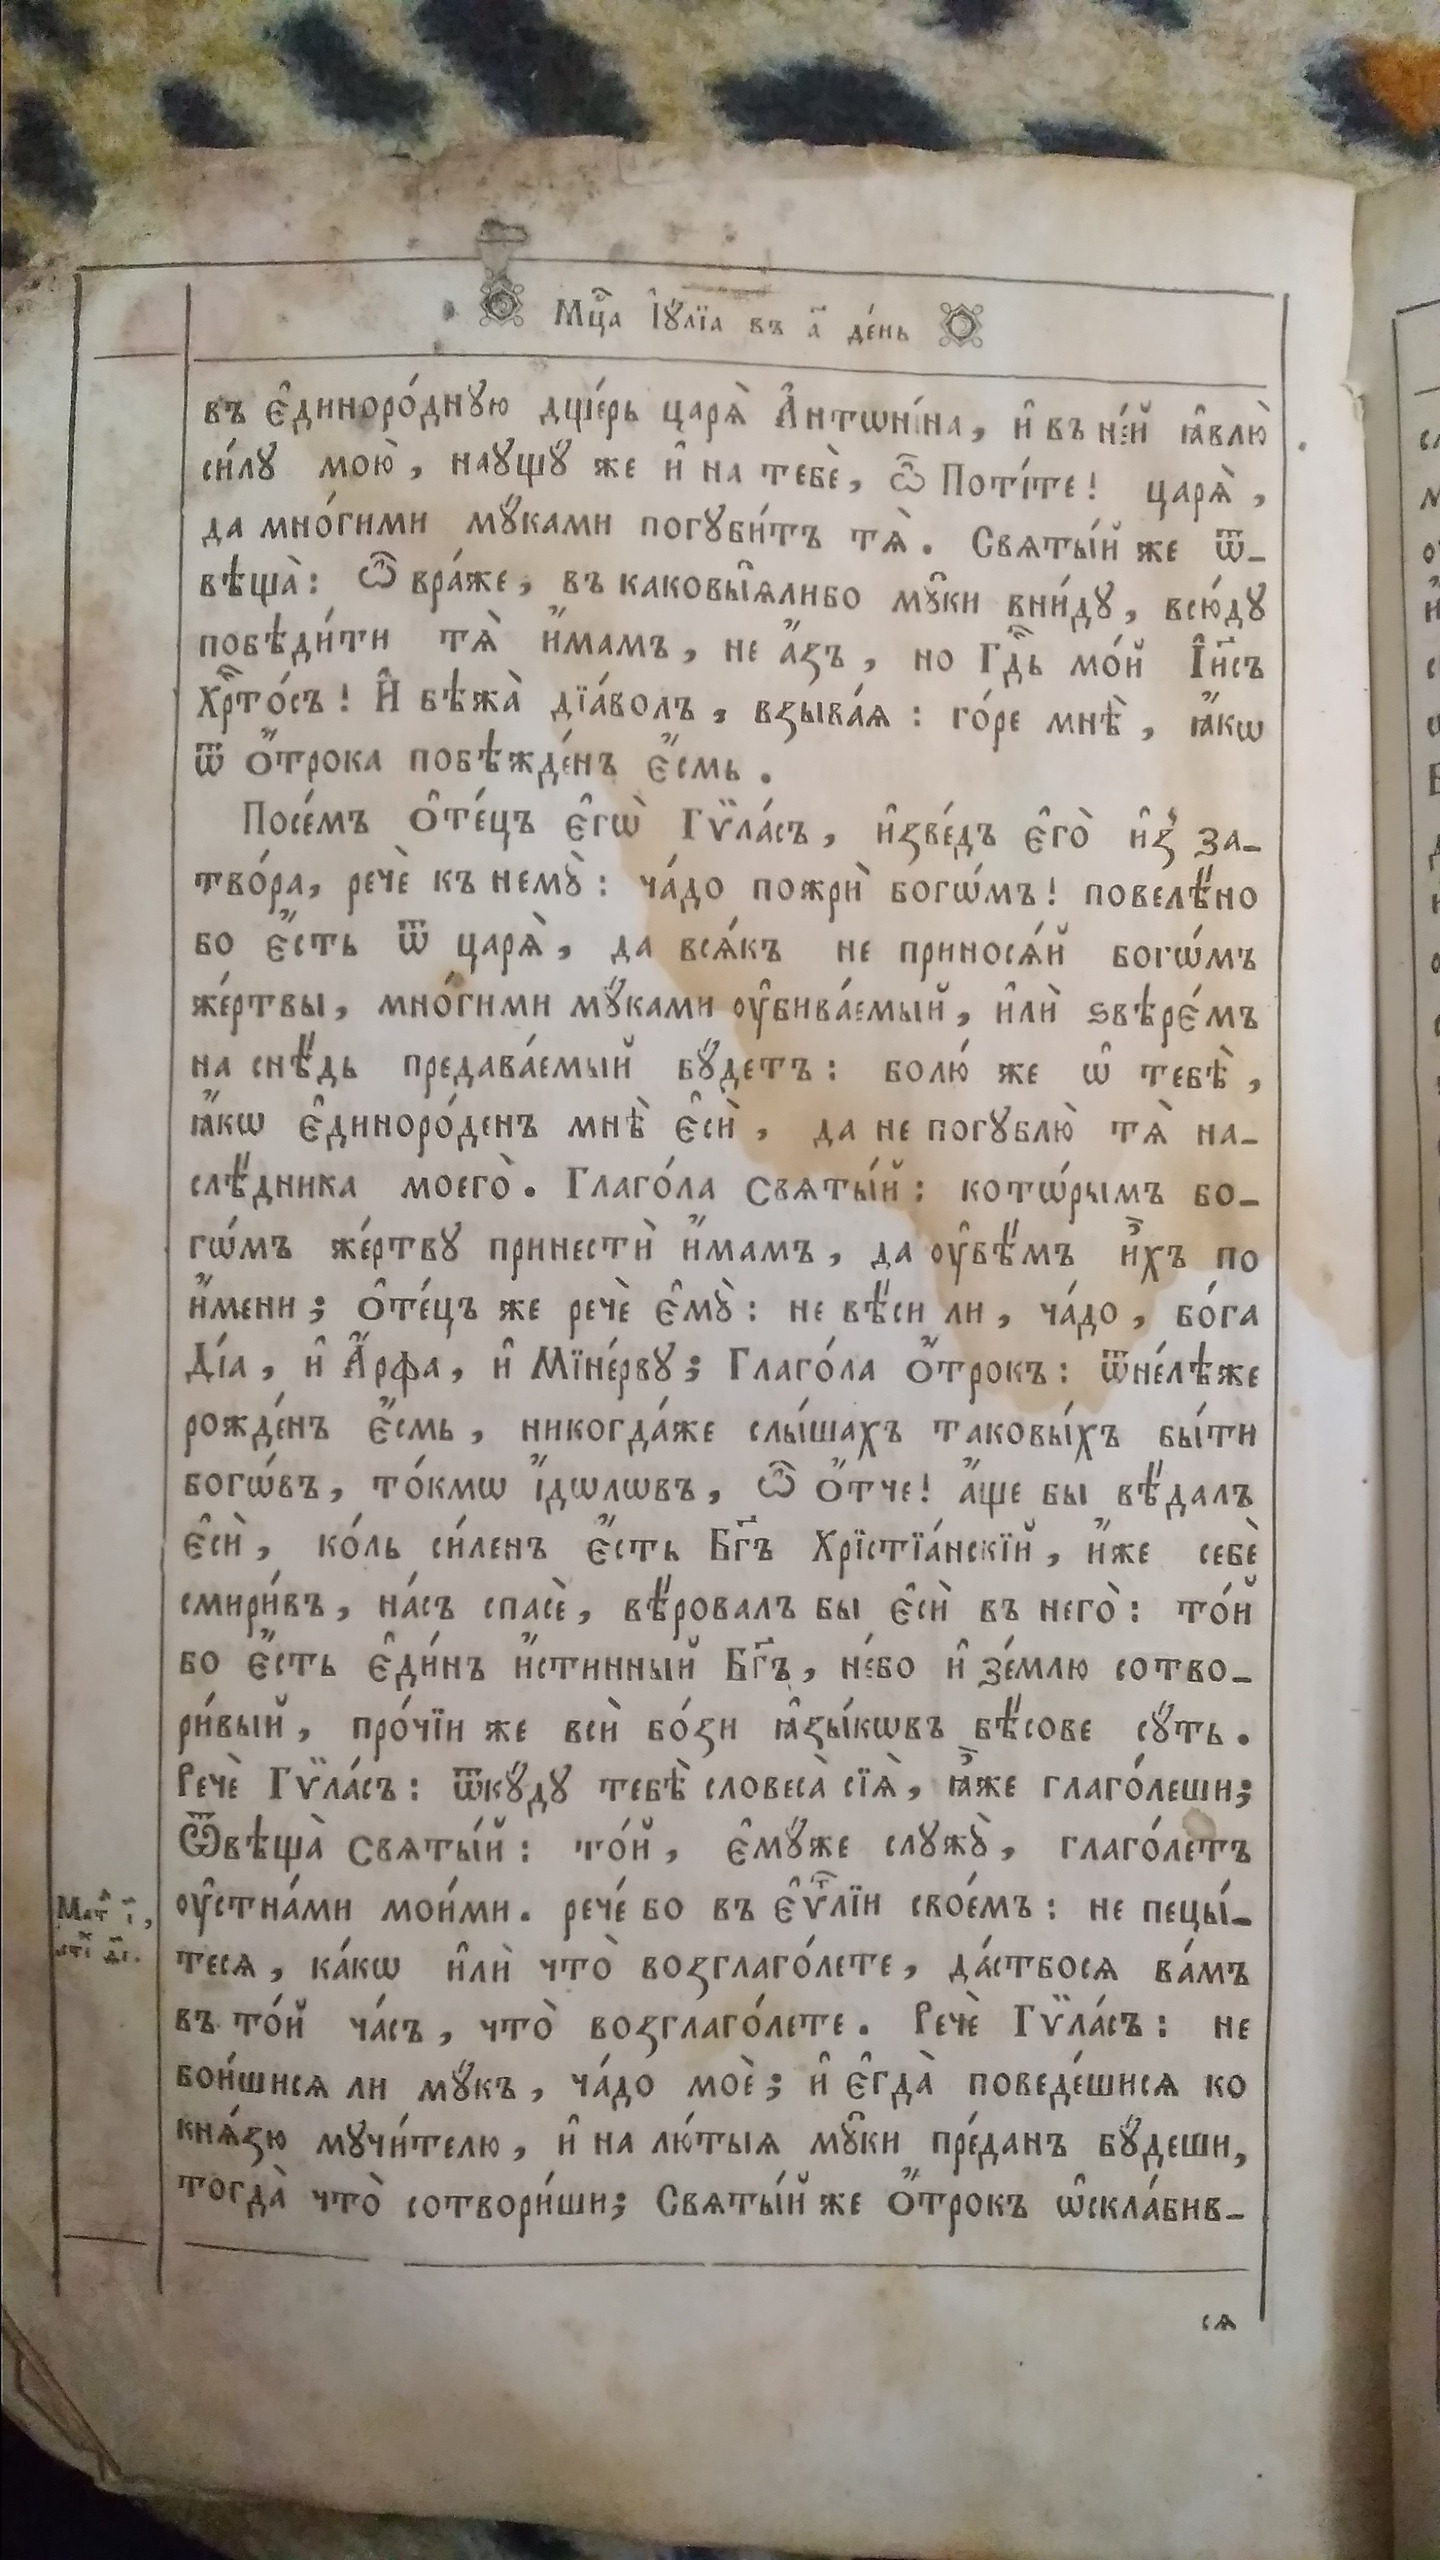 Мцⷭ҇а І҆ꙋлїа въ а҃ де́нь
въ є҆диноро́днꙋю дще́рь царѧ̀ А҆нтѡні́на, и҆ въ не́й ꙗ҆влю̀
си́лꙋ мою̀, наꙋщꙋ́ же и҆ на тебѐ, ѽ Поті́те! царѧ̀,
да мно́гими мꙋ́ками погꙋби́тъ тѧ̀. Свѧты́й же ѿ-
вѣща̀: Ѽ вра́же, въ каковы̑ѧлибо мꙋ̑ки вни́дꙋ, всю́дꙋ
побѣди́ти тѧ̀ и҆́мамъ, не а҆́зъ, но Гдⷭ҇ь мо́й І҆и҃съ
Хрⷭ҇то́съ! И҆ бѣжа̀ дїа́волъ, взыва́ѧ: го́ре мнѣ̀, ꙗ҆́кѡ
ѿ ѻ҆́трока побѣжде́нъ є҆́смь.
Посе́мъ ѻ҆те́цъ є҆гѡ̀ Гѷла́съ, и҆зве́дъ є҆го̀ и҆з̾ за-
тво́ра, речѐ къ немꙋ̀: ча́до пожрѝ богѡ́мъ! повелѣ́но
бо є҆́сть ѿ царѧ̀, да всѧ́къ не приносѧ́й богѡ́мъ
же́ртвы, мно́гими мꙋ́ками ᲂу҆бива́емый, и҆лѝ ѕвѣрє́мъ
на снѣ́дь предава́емый бꙋ́детъ: болю́ же ѡ҆ тебѣ̀,
ꙗ҆́кѡ є҆диноро́денъ мнѣ̀ є҆сѝ, да не погꙋблю̀ тѧ̀ на-
слѣ́дника моего̀. Глаго́ла свѧты́й: котѡ́рымъ бо-
гѡ́мъ же́ртвꙋ принестѝ и҆́мамъ, да ᲂу҆вѣ́мъ и҆̀хъ по
и҆́мени; ѻ҆те́цъ же речѐ є҆мꙋ̀: не вѣ́си ли, ча́до, бо́га
Ді́а, и҆ А҆́рфа, и҆ Мїне́рвꙋ; Глаго́ла ѻ҆́трокъ: ѿне́лѣже
рожде́нъ є҆́смь, никогда́же слы́шахъ таковы́хъ бы́ти
богѡ́въ, то́кмѡ і҆́дѡлѡвъ, ѽ ѻ҆́тче! а҆́ще бы вѣ́далъ
є҆сѝ, ко́ль си́ленъ є҆́сть Бг҃ъ Хрїстїа́нскїй, и҆́же себѐ
смири́въ, на́съ спасѐ, вѣ́ровалъ бы є҆сѝ въ него̀: то́й
бо є҆́сть є҆ди́нъ и҆́стинный Бг҃ъ, не́бо и҆ зе́млю сотво-
ри́вый, про́чїи же всѝ бо́зи ꙗ҆зы́кѡвъ бѣ́сове сꙋ́ть.
Речѐ Гѷла́съ: ѿкꙋ́дꙋ тебѣ̀ словеса̀ сїѧ̀, ꙗ҆̀же глаго́леши;
Ѿвѣща̀ свѧты́й: то́й, є҆мꙋ́же слꙋжꙋ̀, глаго́летъ
ᲂу҆стна́ми мои́ми. рече́ бо въ є҆ѵⷢ҇лїи свое́мъ: не пецы́-
тесѧ, ка́кѡ и҆лѝ что̀ возглаго́лете, да́стбосѧ ва́мъ
въ то́й ча́съ, что̀ возглаго́лете. Речѐ Гѷла́съ: не
бои́шисѧ ли мꙋ́къ, ча́до моѐ; и҆ є҆гда̀ поведе́шисѧ ко
кнѧ́зю мꙋчи́телю, и҆ на лю́тыѧ мꙋ̑ки пре́данъ бꙋ́деши,
тогда̀ что̀ сотвори́ши; Свѧты́й же ѻ҆́трокъ ѡ҆скла́бив-
сѧ